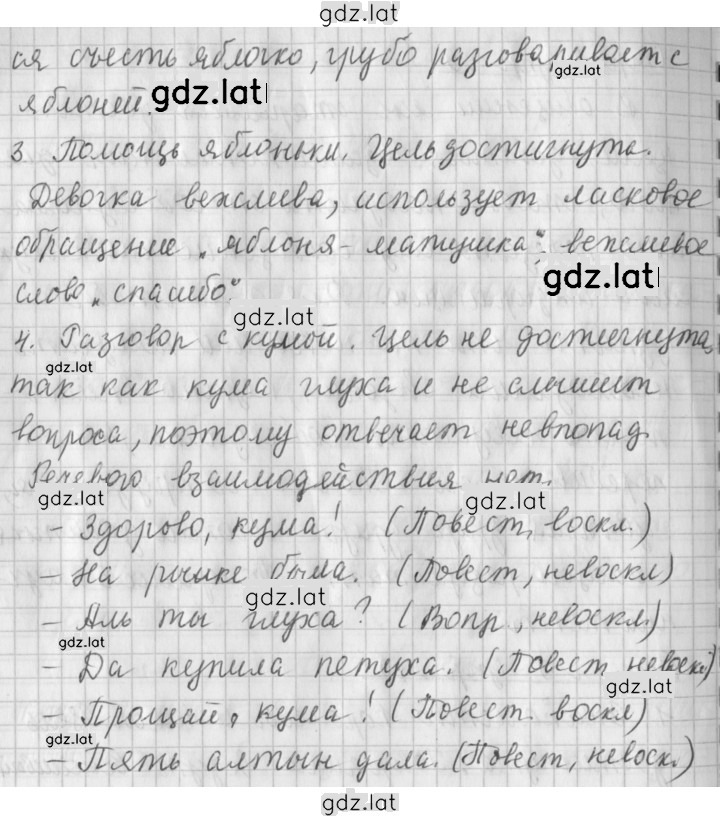 gdz.lat
ся съесть яблочко, грубо разговаривает с
gdz.lat
яблоней.
gdz.lat
3. Помощь яблоньки. Цель достигнута.
Девочка вежлива, использует ласковое
обращение „яблоня-матушка“, вежливое
gdz.lat
слово „спасибо“.
gdz.lat
4. Разговор с кумой. Цель не достигнута,
gdz.lat
так как кума глуха и не слышит
вопроса, поэтому отвечает невпопад.
Речевого взаимодействия нет.
gdz.lat
gdz.lat
- Здорово, кума! (Повест, воскл.)
- На рынке была. (Повест, невоскл)
gdz.lat
- Аль ты глуха? (Вопр, невоскл.)
gdz.lat
- Да купила петуха. (Повест невоск.)
gdz.lat
- Прощай, кума! (Повест. воскл)
gdz.lat
- Пять алтын дала. (Повест, невоск.)
gdz.lat